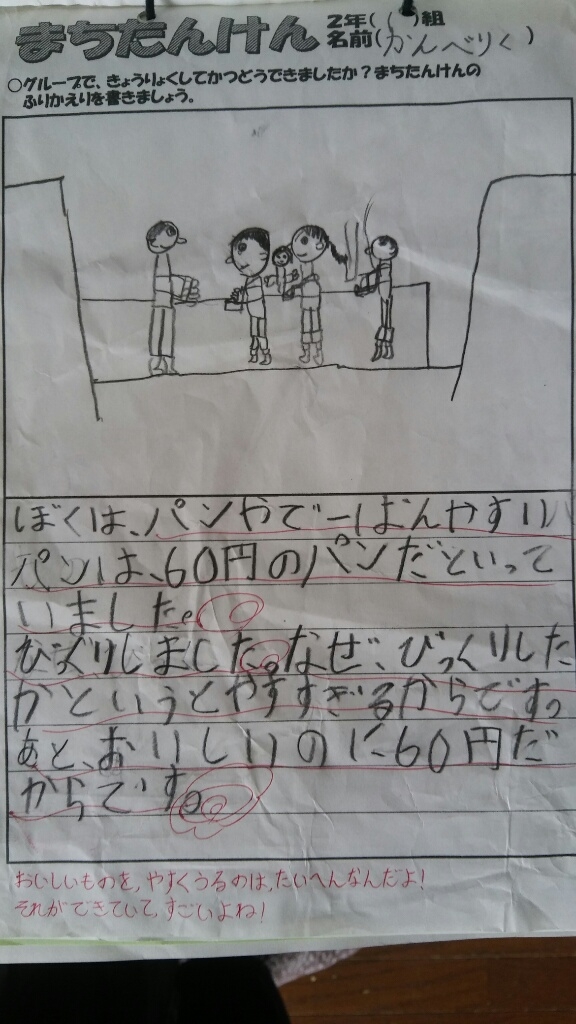 まちたんけん
2年( )組
名前(かんべりく)
○グループで、きょうりょくしてかつどうできましたか？まちたんけんの
ふりかえりを書きましょう。
ぼくは、パンやで一ばんやすい
パンは、60円のパンだといって
いました。
びっくりしました。なぜ、びっくりした
かというとやすすぎるからです。
あと、おいしいのに60円だ
からです。
おいしいものを、やすくうるのは、たいへんなんだよ！
それができていて、すごいよね！